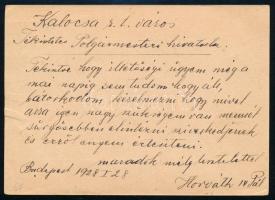 Kalocsa r. t. város
Tekintetes Polgármesteri hivatala.
Tekintve hogy illetőségi ügyem még a
mai napig sem tudom hogy áll,
bátorkodom kérelmezni hogy mivel
arra igen nagy szükségem van mennél
sürgősebben elintézni szíveskedjenek
és erről engem értesíteni.
maradok mély tisztelettel
Budapest 1928 I 28
Horváth Pál